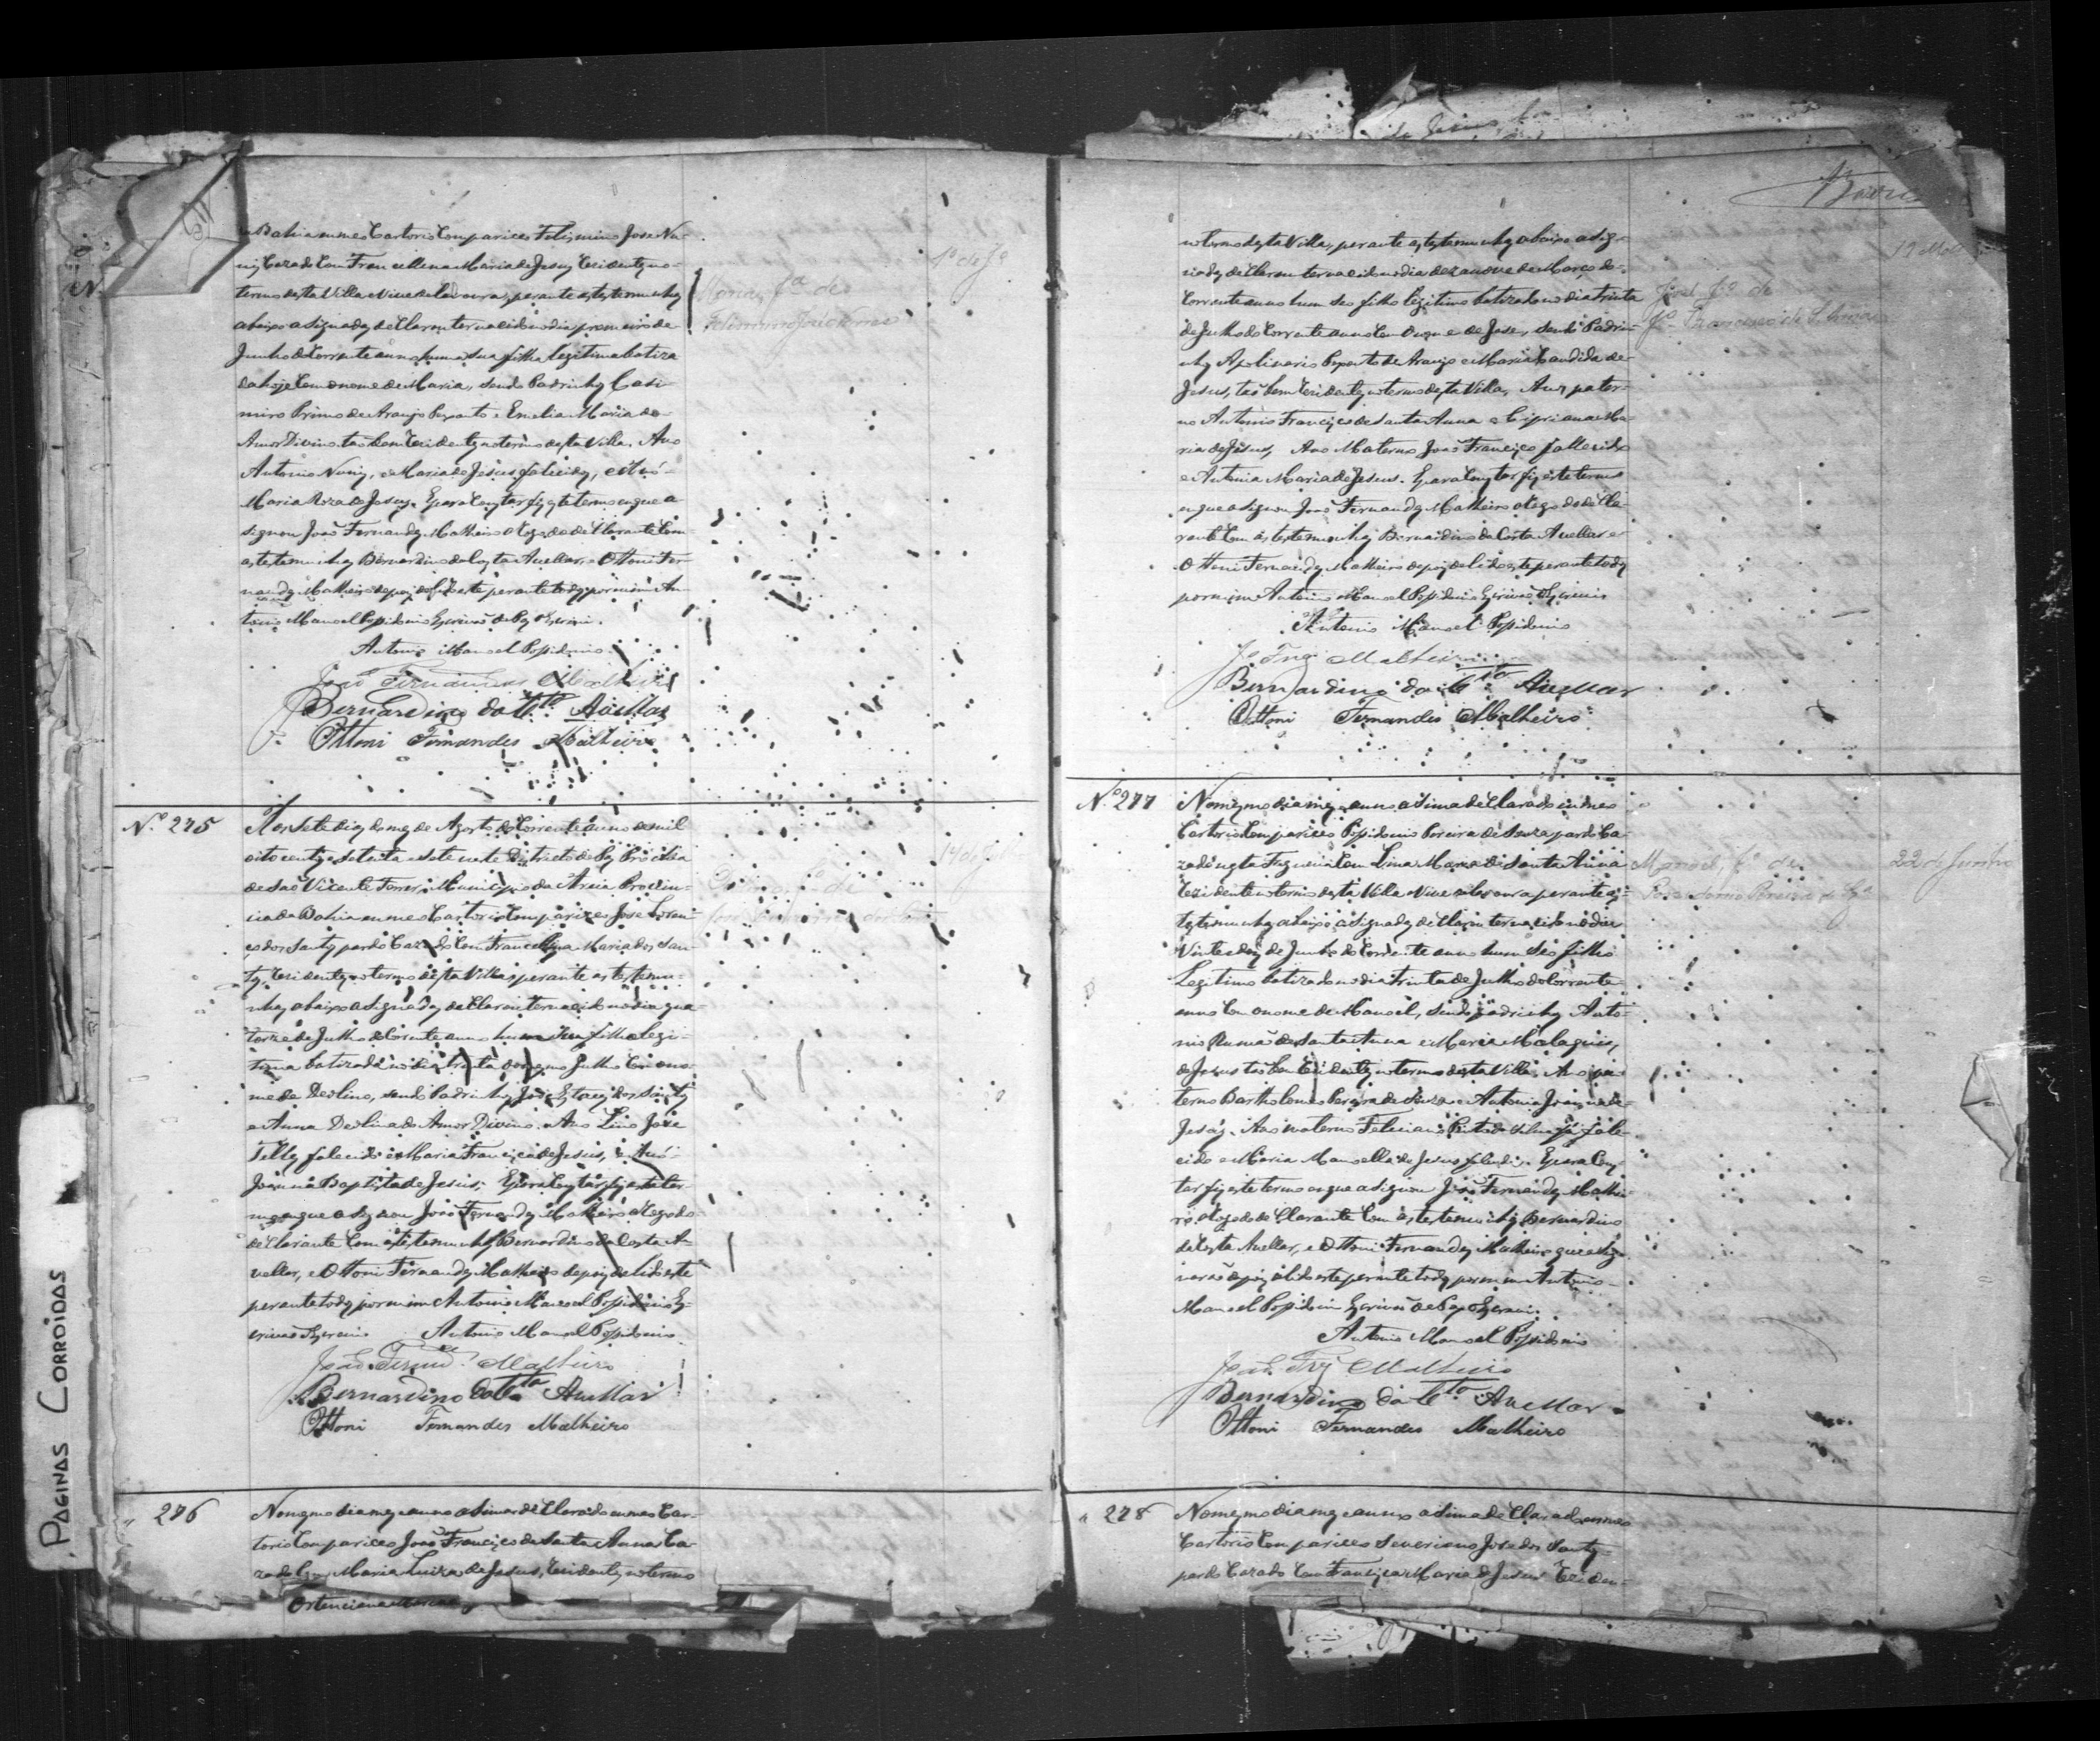 Bahia em meo Cartorio Compareceo Felismino Jose Nu-
nis Cazado Com Francellina Maria de Jesus Rezidentes no
termo desta Villa Vive da lavoura, perante as testemunhas
abaixo asignadas de Clarou ter nacido no dia primeiro de
Junho do Corrente anno huma sua filha legitima batiza
da hoje Com o nome de Maria, sendo Padrinhos Casi-
miro Primo de Araujo Pexoto e Emelia Maria do
Amor Divino, taobem Rezidentes no termo desta Villa. Avo
Antonio Nunis, e Maria de Jesus falecidos, e Avó
Maria Roza de Jesus. E para Constar fiz este termo em que a
signou João Fernandes Malheiro a Rogo do de Clarante Com
as testemunhas Bernardino da Costa Avellar, e Ottoni Fer-
nandes Malheiro depois de lido este perante todos por mim An-
tonio Manoel Possidonio Escrivão de Paz Escrevi.
Antonio Manoel Possidonio
João Fernandes Malheiro
Bernardino da Cta Avellar
Ottoni Fernandes Malheiro
Maria, fa de
Felismino José Nunes
1º de Jº
Nº 275
Aos Sete dias do mez de Agosto do Corrente anno de mil
oito centos e setenta e sete neste Districto de Paz Provincia
de São Vicente Ferrer, Municipio da Areia Provin-
cia da Bahia em meo Cartorio Compareceo Jose Loren-
ço dos Santos pardo Cazado Com Francellina Maria dos San
tos, Rezidentes no termo desta Villa perante as testemu-
nhas abaixo asignadas de Clarou ter nacido no dia qua
torze de Julho do Corrente anno huma sua filha legi-
tima batizada no dia trinta do mesmo Julho Com o no-
me de Deolina, sendo Padrinhos José Estacis dos Santos
e Anna Deolina do Amor Divino. Avo Lino José
Telles falecido e Maria Francisca de Jesus, e Avó
Joanna Baptista de Jesus. E para Constar fiz este ter
mo em que asignou João Fernandes Malheiro a Rogo do
de Clarante Com as testemunhas Bernardino da Costa A-
vellar, e Ottoni Fernandes Malheiro depois de lido este
perante todos por mim Antonio Manoel Possidonio Es-
crivão Escrevi Antonio Manoel Possidonio
João Fernd.es Malheiro
Bernardino da Cta Avellar
Ottoni Fernandes Malheiro
14 de Julho
" 276
No mesmo dia mez e anno asima de Clarado em meo Car-
torio Compareceo João Francisco de Santa Anna Ca-
zado Com Maria Luiza de Jesus, Rezidentes no termo
Ortenciana Maria
PAGINAS CORROIDAS
no termo desta Villa, perante as testemunhas abaixo asig-
nadas de Clarou ter nacido no dia dezanove de Março do
Corrente anno hum seo filho legitimo batizado no dia trinta
de Julho do Corrente anno Com o nome de Jose, sendo Padri-
nhos Apolinario Pexoto de Araujo e Maria Candida de
Jesus, taobem Rezidentes no termo desta Villa, Avos pater-
no Antonio Francisco de Santa Anna e Cipriana Ma-
ria de Jesus, Avo Materno João Francisco fallecido
e Antonia Maria de Jesus. E para Constar fiz este termo
em que asignou João Fernandes Malheiro a Rogo do de Cla-
rante Com as testemunhas Bernardino da Costa Avellar e
Ottoni Fernandes Malheiro depois de lido este perante todos
por mim Antonio Manoel Possidonio Escrivão Escrevi
Antonio Manoel Possidonio
Jº Frz Malheiro
Bernardino da Cta Avellar
Ottoni Fernandes Malheiro
José fº de
Jº Francisco de S. Anna
19 Mço
Nº 277
No mesmo dia mez e anno asima de Clarado em meo
Cartorio Compareceo Possidonio Pereira de Souza pardo Ca-
zado nesta Freguezia Com Lina Maria de Santa Anna
Rezidente no termo desta Villa Vive da lavoura perante as
testemunhas abaixo asignadas de Clarou ter nacido no dia
Vinte e dois de Junho do Corrente anno hum seo filho
Legitimo batizado no dia trinta de Julho do Corrente
anno Com o nome de Manoel, sendo padrinhos Anto-
nio Rumão de Santa Anna e Maria Malaquias
de Jesus taobem Rezidentes no termo desta Villa. Avo pa-
terno Bartholomeo Pereira de Souza e Antonia Joaquina de
Jesus. Avo materno Feleciano Pinto da Silva já fale-
cido e Maria Manoella de Jesus falecida. E para Cons
tar fiz este termo em que asignou João Fernandes Malhei-
ro a Rogo do de Clarante Com as testemunhas Bernardino
da Costa Avellar, e Ottoni Fernandes Malheiro que asig-
narão depois de lido este perante todos por mim Antonio
Manoel Possidonio Escrivão de Paz Escrevi.
Antonio Manoel Possidonio
João Frz Malheiro
Bernardino da Cta Avellar
Ottoni Fernandes Malheiro
Manoel, fº de
Possidonio Pereira de Sza
22 de Junho
" 278
No mesmo dia mez e anno asima de Clarado em meo
Cartorio Compareceo Severiano José dos Santos
pardo Cazado Com Francisca Maria de Jesus Reziden-